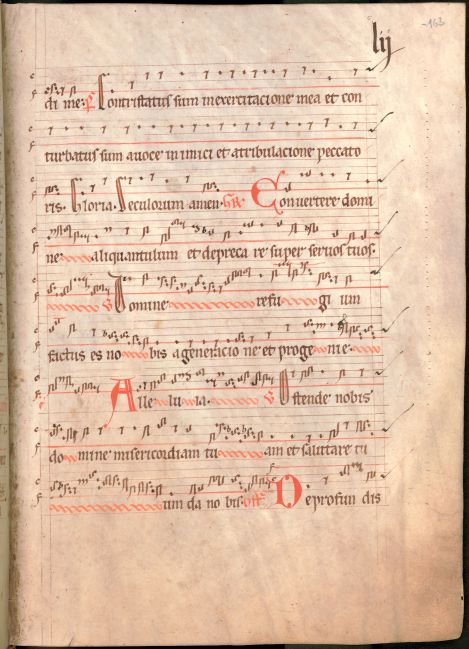 lij
-163
di me. Contristatus sum in exercitacione mea et con
turbatus sum a voce inimici et a tribulacione peccato
ris. Gloria. Seculorum amen. Gr. Convertere domi
ne aliquantulum et depreca re super servos tuos.
V Domine refu gi um
factus es no bis a generacio ne et proge nie
Alle lu ia V Ostende nobis
do mine misericordiam tu am et salutare tu
um da no bis. Off. De profun dis